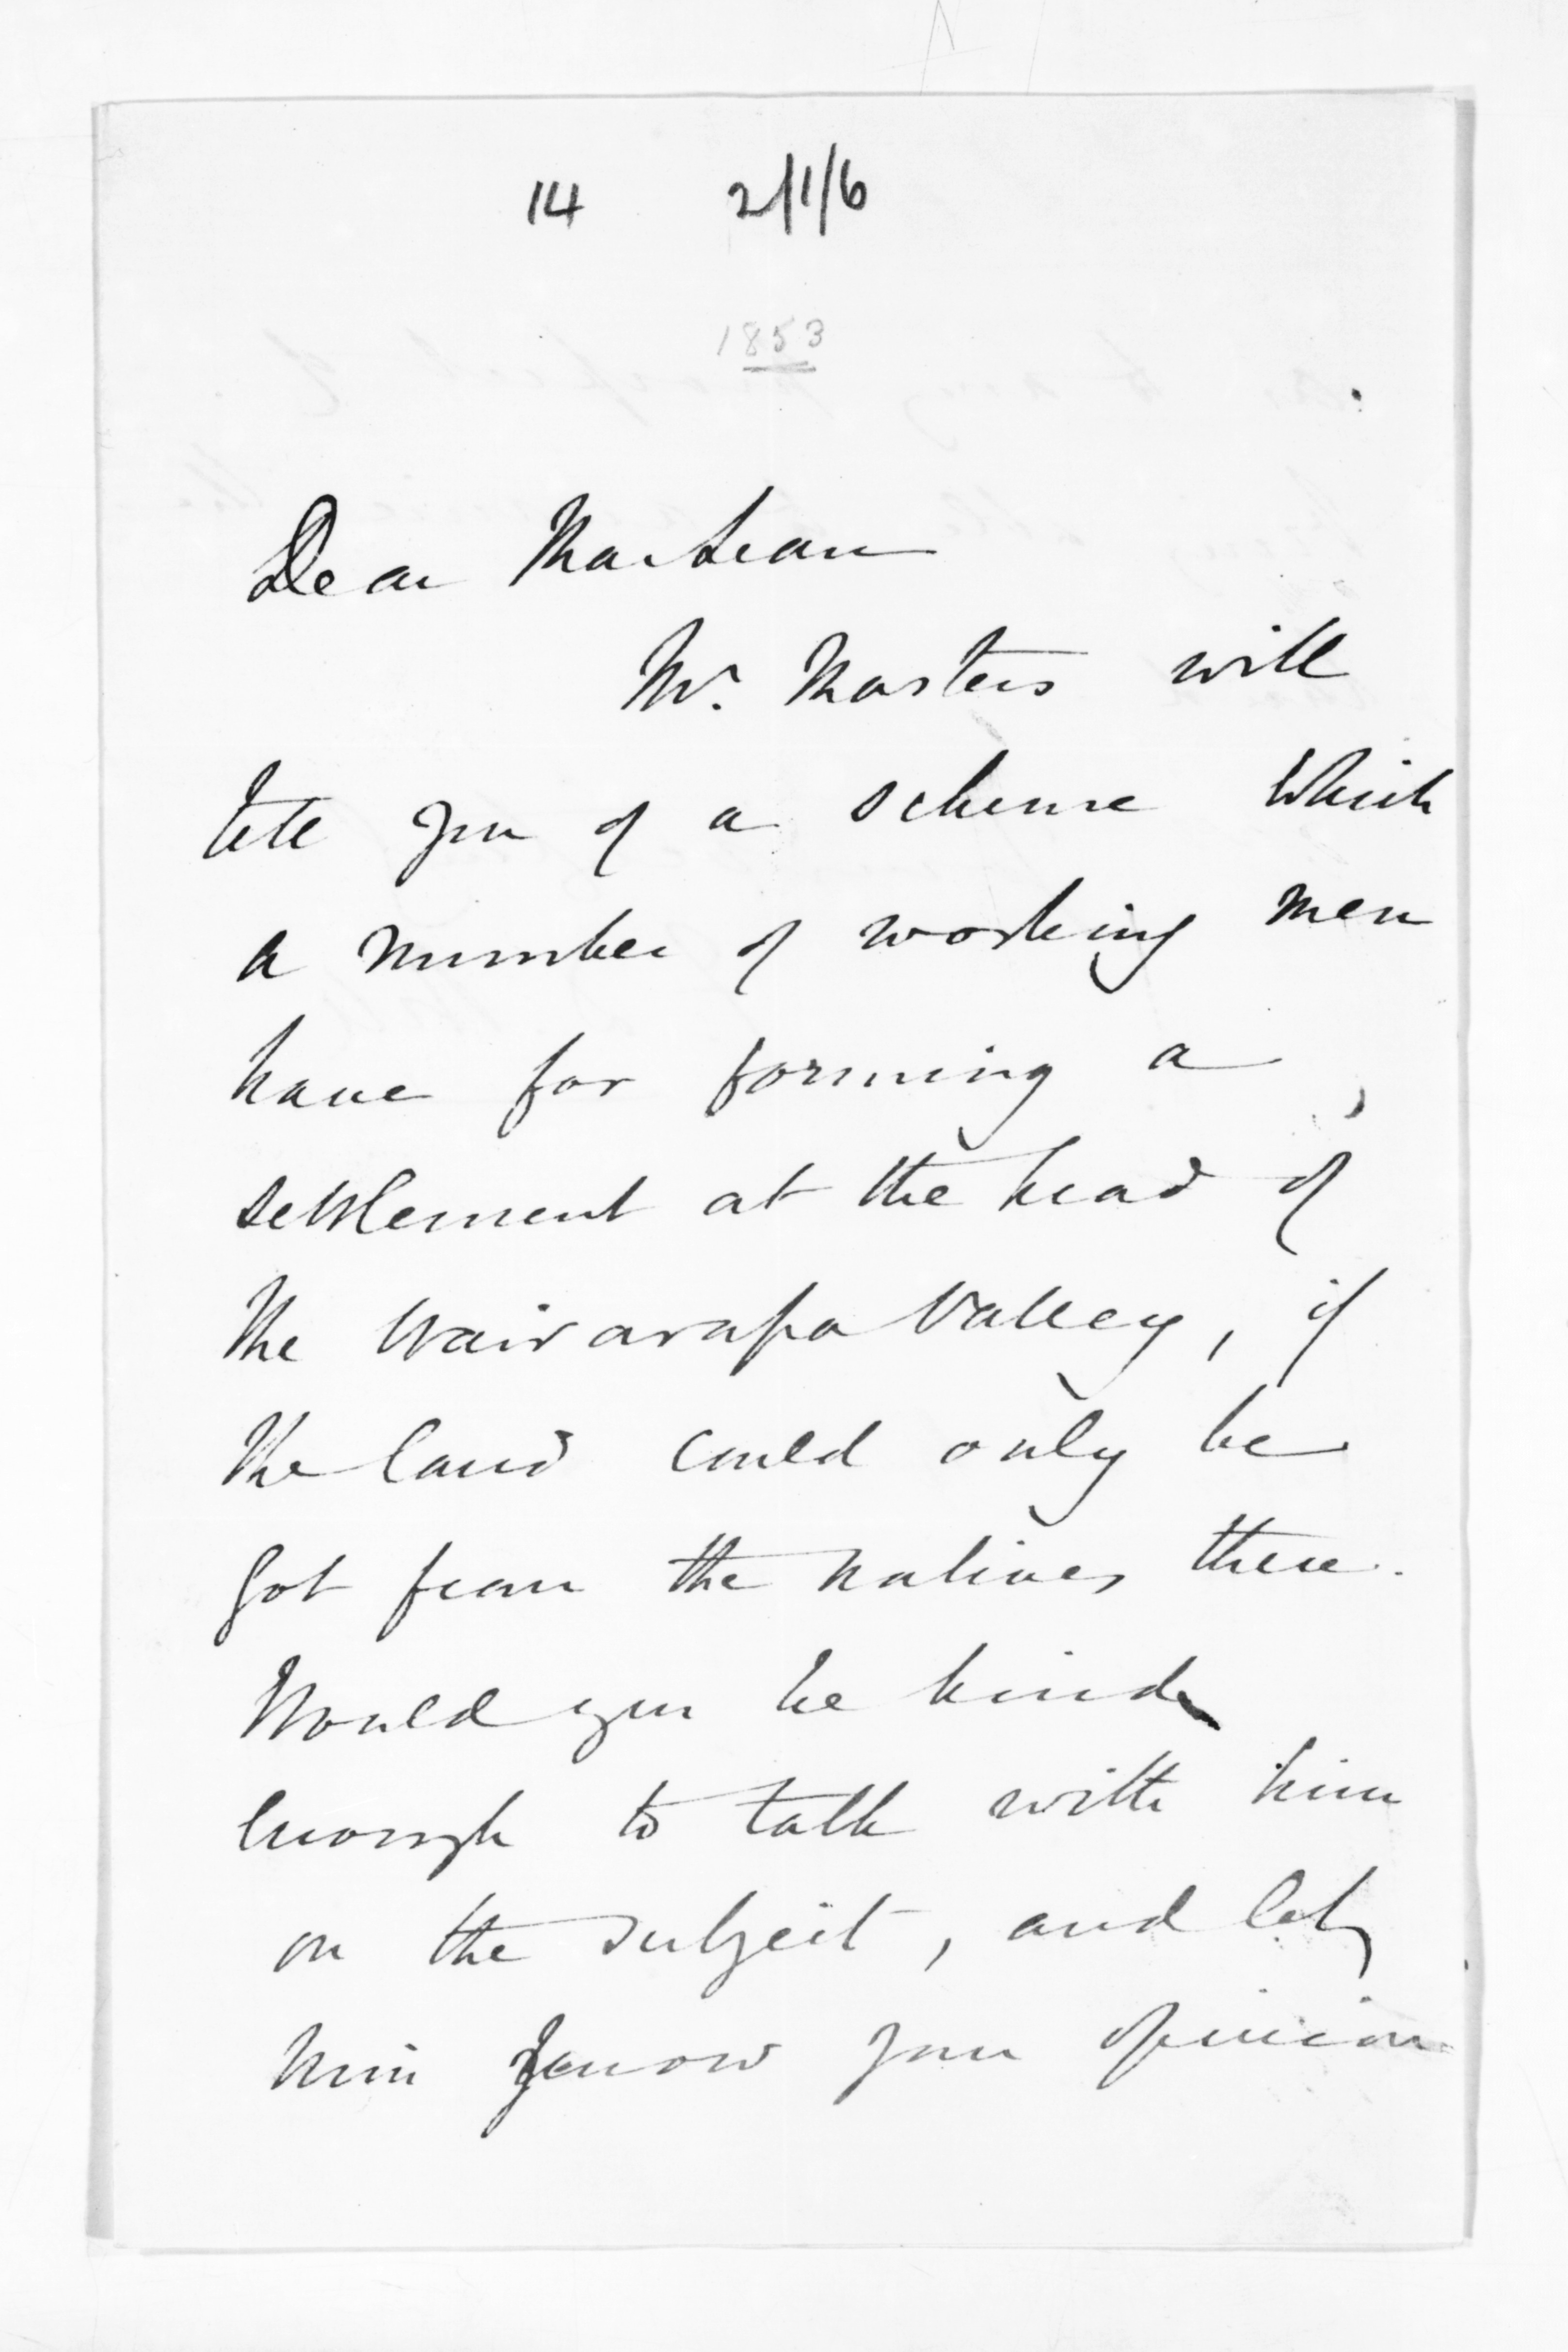 14 2/1/6
1853
Dear MacLean
Mr. Masters will
tell you of a scheme which
a number of working men
have for forming a
settlement at the head of
the Wairarapa Valley, if
the land could only be
got from the natives there.
Would you be kind
enough to talk with him
on the subject, and let
him know your opinion